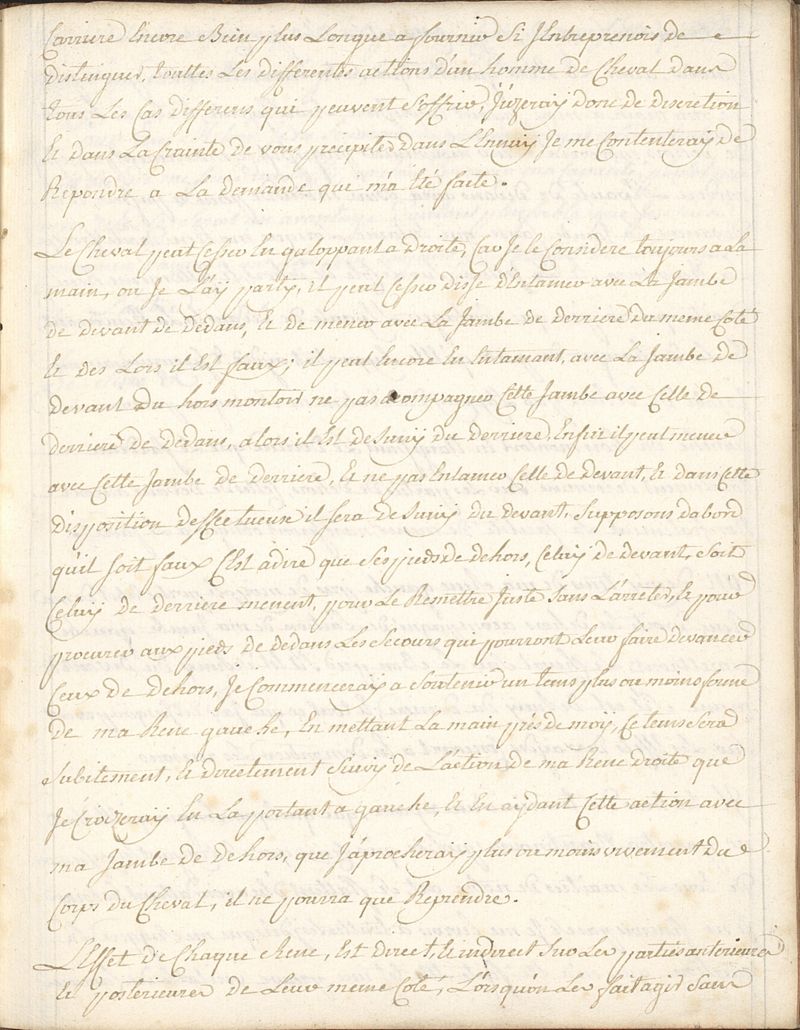 Carriere Encore Bien plus Longue a fournir Si J'Entreprenois de
distinguer, touttes Les differentes actions d'un homme de Cheval dans
tous Les Cas differens qui peuvent S'offrir, J'uzeray donc de discretion
Et dans La Crainte de vous precipiter dans L'Ennuy Je me Contenteray de
Repondre a La demande qui m'a Eté faite.
Le Cheval peut Cesser En galoppant a droite, Car Je le Considere toujours a La
main, ou Je L'ay party, il peut Cesser disse d'Entamer avec La Jambe
de devant de dedans, Et de mener avec La Jambe de derriere du meme Coté
Et des Lors il Est faux; il peut Encore En Entamant, avec La Jambe de
devant du hors montoir ne pas acompagner Cette Jambe avec Celle de
derriere de dedans, alors il Est desuny du derriere, Enfin il peut mener
avec Cette Jambe de derriere, Et ne pas Entamer Celle de devant, Et dans Cette
disposition deffectueuse il sera desuny du devant. Supposons dabord
qu'il soit faux C'Est adire que Ses pieds de dehors, Celuy de devant, soit
Celuy de derriere menent, pour Le Remettre Juste Sans L'arreter, Et pour
procurer aux pieds de dedans Les Secours qui pourront Leur faire devancer
Ceux de dehors, Je Commenceray a Soutenir un tems plus ou moins ferme
de ma Rene gauche, En mettant La main prés de moy, Ce tems Sera
Subitement, Et directement Suivy de L'action de ma Rene droite que
Je Croizeray En La portant a gauche, Et En aydant Cette action avec
ma Jambe de dehors, que J'aprocheray plus ou moins vivement du
Corps du Cheval, il ne pourra que Reprendre.
L'Effet de Chaque Rene, Est direct, Et indirect Sur Les parties anterieures
Et posterieures de Leur meme Coté, Lorsqu'on Les fait agir Sans